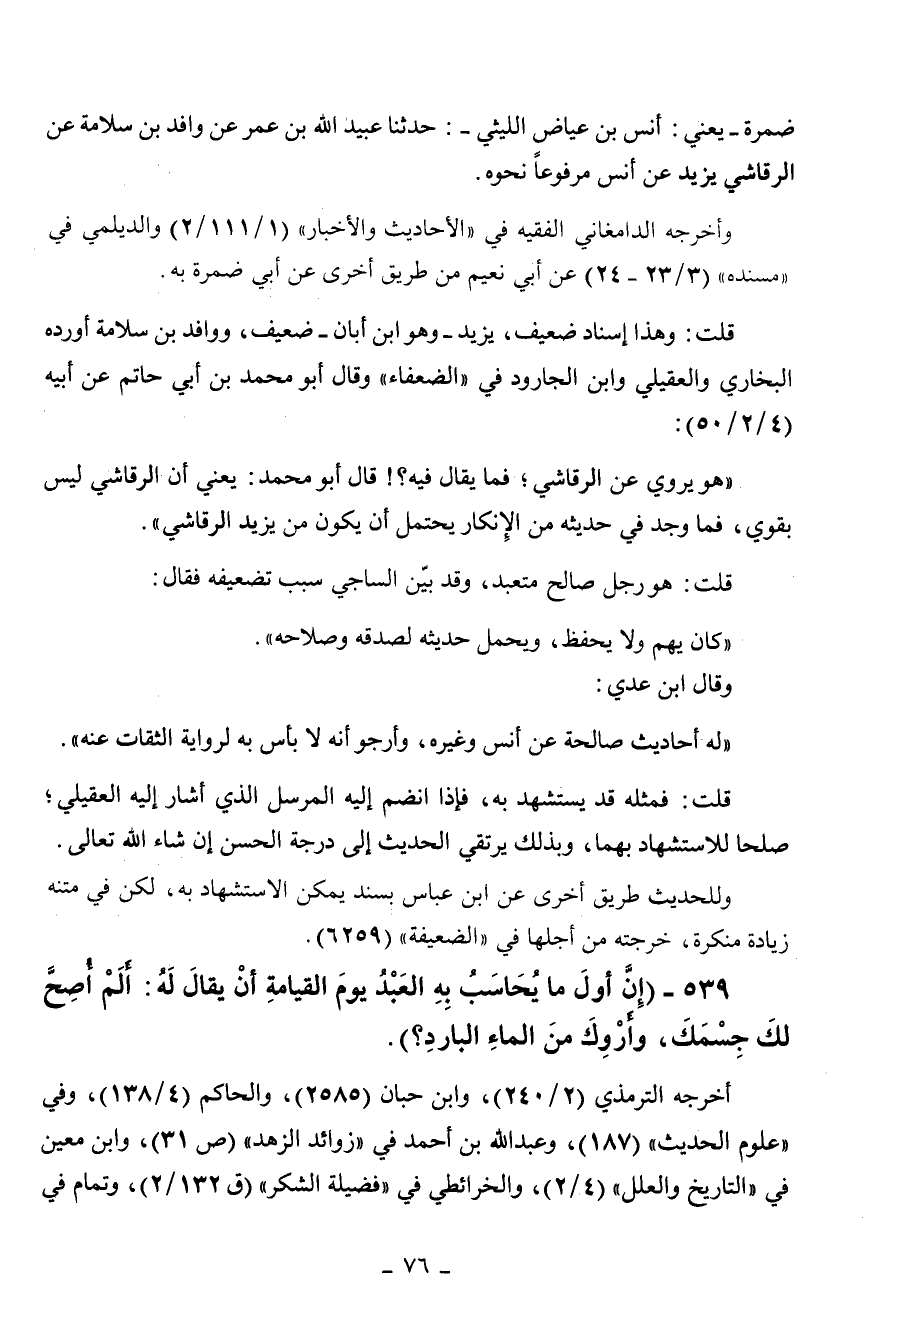 ضمرة ـ يعني : أنس بن عياض الليثي ـ : حدثنا عبيد الله بن عمر عن وافد بن سلامة عن
الرقاشي يزيد عن أنس مرفوعاً نحوه .
وأخرجه الدامغاني الفقيه في «الأحاديث والأخبار» (١/ ١١١/ ٢) والديلمي في
«مسنده» (٣/ ٢٣ ـ ٢٤) عن أبي نعيم من طريق أخرى عن أبي ضمرة به .
قلت : وهذا إسناد ضعيف، يزيد ـ وهو ابن أبان ـ ضعيف، ووافد بن سلامة أورده
البخاري والعقيلي وابن الجارود في «الضعفاء» وقال أبو محمد بن أبي حاتم عن أبيه
(٤/ ٢/ ٥٠) :
«هو يروي عن الرقاشي ؛ فما يقال فيه؟! قال أبو محمد : يعني أن الرقاشي ليس
بقوي، فما وجد في حديثه من الإنكار يحتمل أن يكون من يزيد الرقاشي» .
قلت : هو رجل صالح متعبد، وقد بيّن الساجي سبب تضعيفه فقال :
«كان يهم ولا يحفظ، ويحمل حديثه لصدقه وصلاحه» .
وقال ابن عدي :
«له أحاديث صالحة عن أنس وغيره، وأرجو أنه لا بأس به لرواية الثقات عنه» .
قلت : فمثله قد يستشهد به، فإذا انضم إليه المرسل الذي أشار إليه العقيلي ؛
صلحا للاستشهاد بهما، وبذلك يرتقي الحديث إلى درجة الحسن إن شاء الله تعالى .
وللحديث طريق أخرى عن ابن عباس بسند يمكن الاستشهاد به، لكن في متنه
زيادة منكرة، خرجته من أجلها في «الضعيفة» (٦٢٥٩) .
٥٣٩ ـ (إنَّ أولَ ما يُحَاسَبُ بِهِ العَبْدُ يومَ القيامةِ أنْ يقالَ لَهُ : أَلَمْ أُصِحَّ
لكَ جِسْمَكَ، وأَرْوِكَ منَ الماءِ الباردِ؟) .
أخرجه الترمذي (٢/ ٢٤٠)، وابن حبان (٢٥٨٥)، والحاكم (٤/ ١٣٨)، وفي
«علوم الحديث» (١٨٧)، وعبدالله بن أحمد في «زوائد الزهد» (ص ٣١)، وابن معين
في «التاريخ والعلل» (٤/ ٢)، والخرائطي في «فضيلة الشكر» (ق ١٣٢/ ٢)، وتمام في
ـ ٧٦ ـ